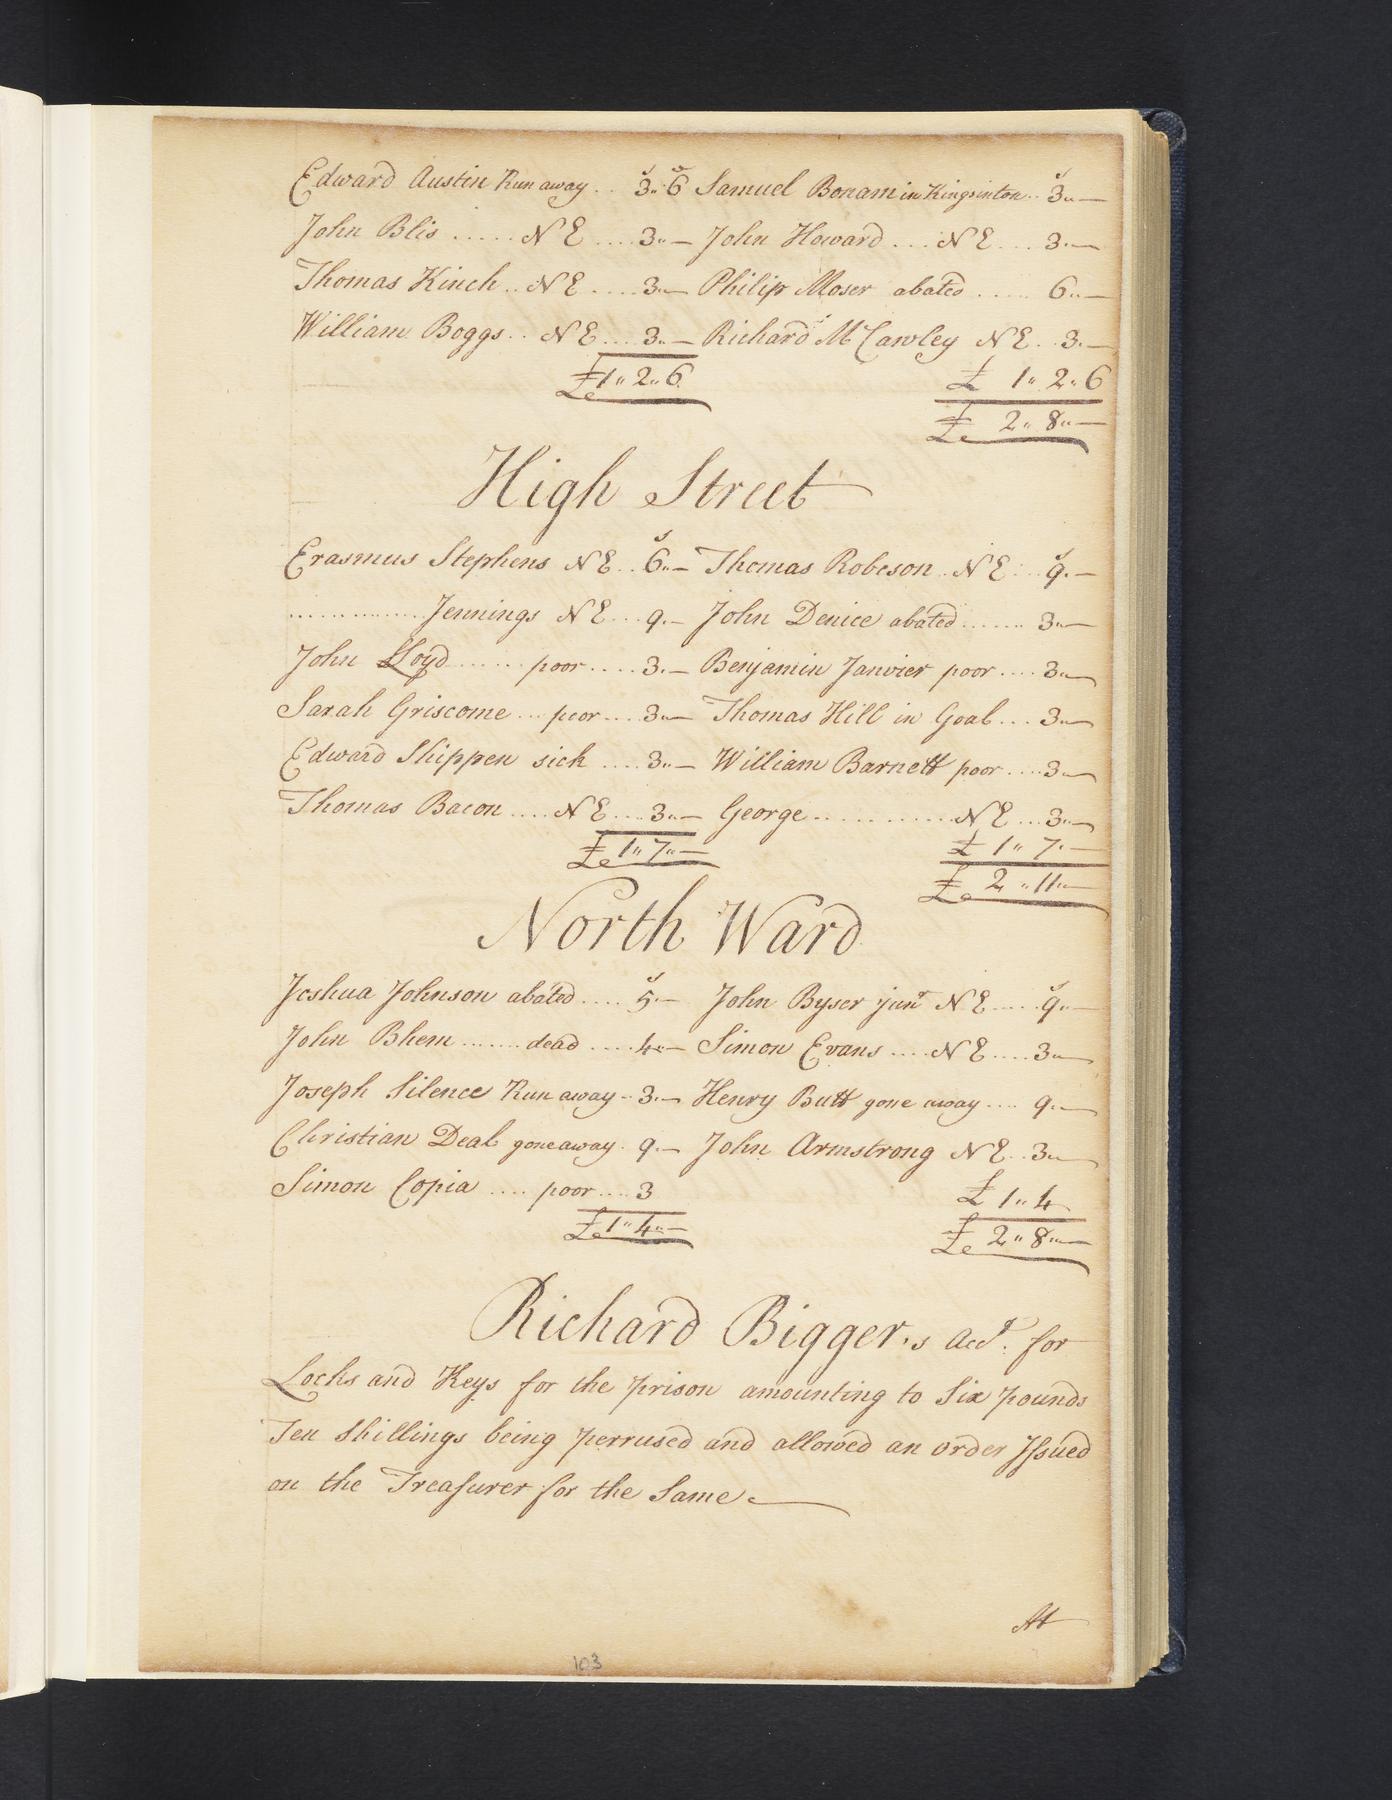 Edward Austin Run away .. 3s„6 Samuel Bonam in Kingsinton .. 3s„—
John Blis ..... N E .... 3„— John Howard ... N E ... 3„—
Thomas Kinch .. N E .... 3„— Philip Moser abated ..... 6„—
William Boggs .. N E ... 3„— Richard McCawley N E .. 3„—
£1„2„6 £ 1„2„6
£ 2„8„—
High Street
Erasmus Stephens N E .. 6s„— Thomas Robeson .. N E ... 9s„—
............... Jennings N E ... 9„— John Denice abated ....... 3„—
John Lloyd ....... poor .... 3„— Benjamin Janvier poor .... 3„—
Sarah Griscome ... poor ... 3„— Thomas Hill in Goal ... 3„—
Edward Shippen sick .... 3„— William Barnett poor .... 3„—
Thomas Bacon .... N E ... 3„— George ............ N E ... 3„—
£1„7„— £ 1„7„—
£ 2„11„—
North Ward
Joshua Johnson abated .... 5s„— John Byser junr N E .... 9s„—
John Bhem ....... dead .... 4„— Simon Evans .... N E .... 3„—
Joseph Silence Run away .. 3„— Henry Butt gone away .... 9„—
Christian Deal gone away . 9„— John Armstrong N E .. 3„—
Simon Copia .... poor ... 3
£ 1„4
£1„4„— £ 2„8„—
Richard Bigger's Acct. for
Locks and Keys for the prison amounting to Six pounds
Ten Shillings being perrused and allowed an order Issued
on the Treasurer for the Same —
At
103